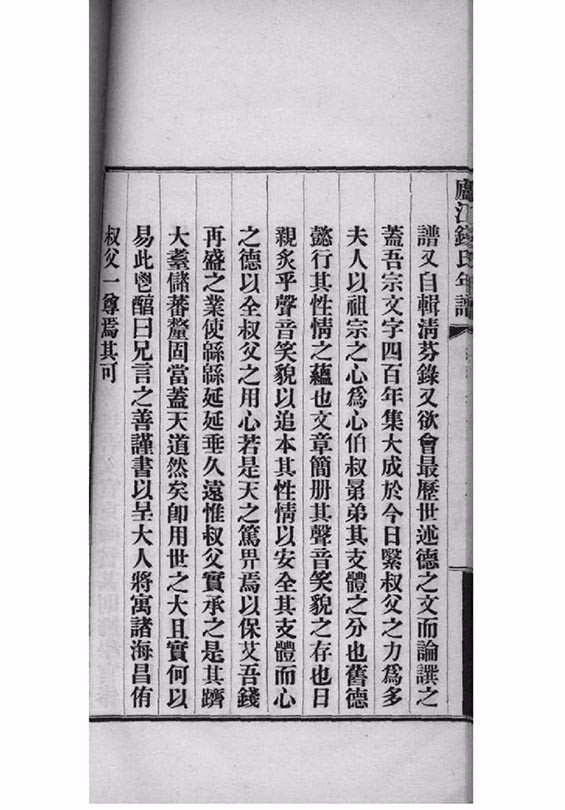 廬江錢氏年譜
譜又自輯淸芬錄又欲會最歷世述德之文而論譔之
蓋吾宗文字四百年集大成於今日繄叔父之力爲多
夫人以祖宗之心爲心伯叔晜弟其支體之分也舊德
懿行其性情之蘊也文章簡册其聲音笑貌之存也日
親炙乎聲音笑貌以追本其性情以安全其支體而心
之德以全叔父之用心若是天之篤畀焉以保艾吾錢
再盛之業使緜緜延延垂久遠惟叔父實承之是其躋
大耋儲蕃釐固當蓋天道然矣卽用世之大且實何以
易此鬯醑曰兄言之善謹書以呈大人將寓諸海昌侑
叔父一尊焉其可